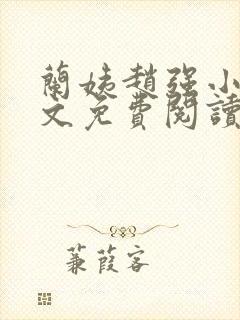 蘭姨趙強小
文免費閱讀
蒹葭客